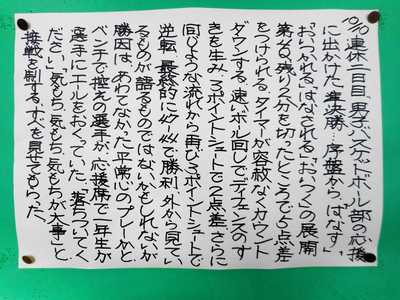 10/10連休二日目、男子バスケットボール部の応援
に出かけた。準決勝…序盤から「はなす」
「おいつかれる」「はなされる」「おいつく」の展開
第4Q残り2分を切ったところで4点差
をつけられる。タイマーが容赦なくカウント
ダウンする。速いボール回しでディフェンスのす
きを生み、3ポイントシュートで2点差。さらに
同じような流れから再び3ポイントシュートで
逆転。最終的に
で勝利。外から見てい
るものが語るものではないかもしれないが
勝因は、あわてなかった平常心のプレーかと
ベンチで控えの選手が、応援席で一年生が
選手にエールをおくっていた。「落ちついてく
ださい」「気もち、気もち、気もちが大事」と
接戦を制する、すべを見せてもらった。